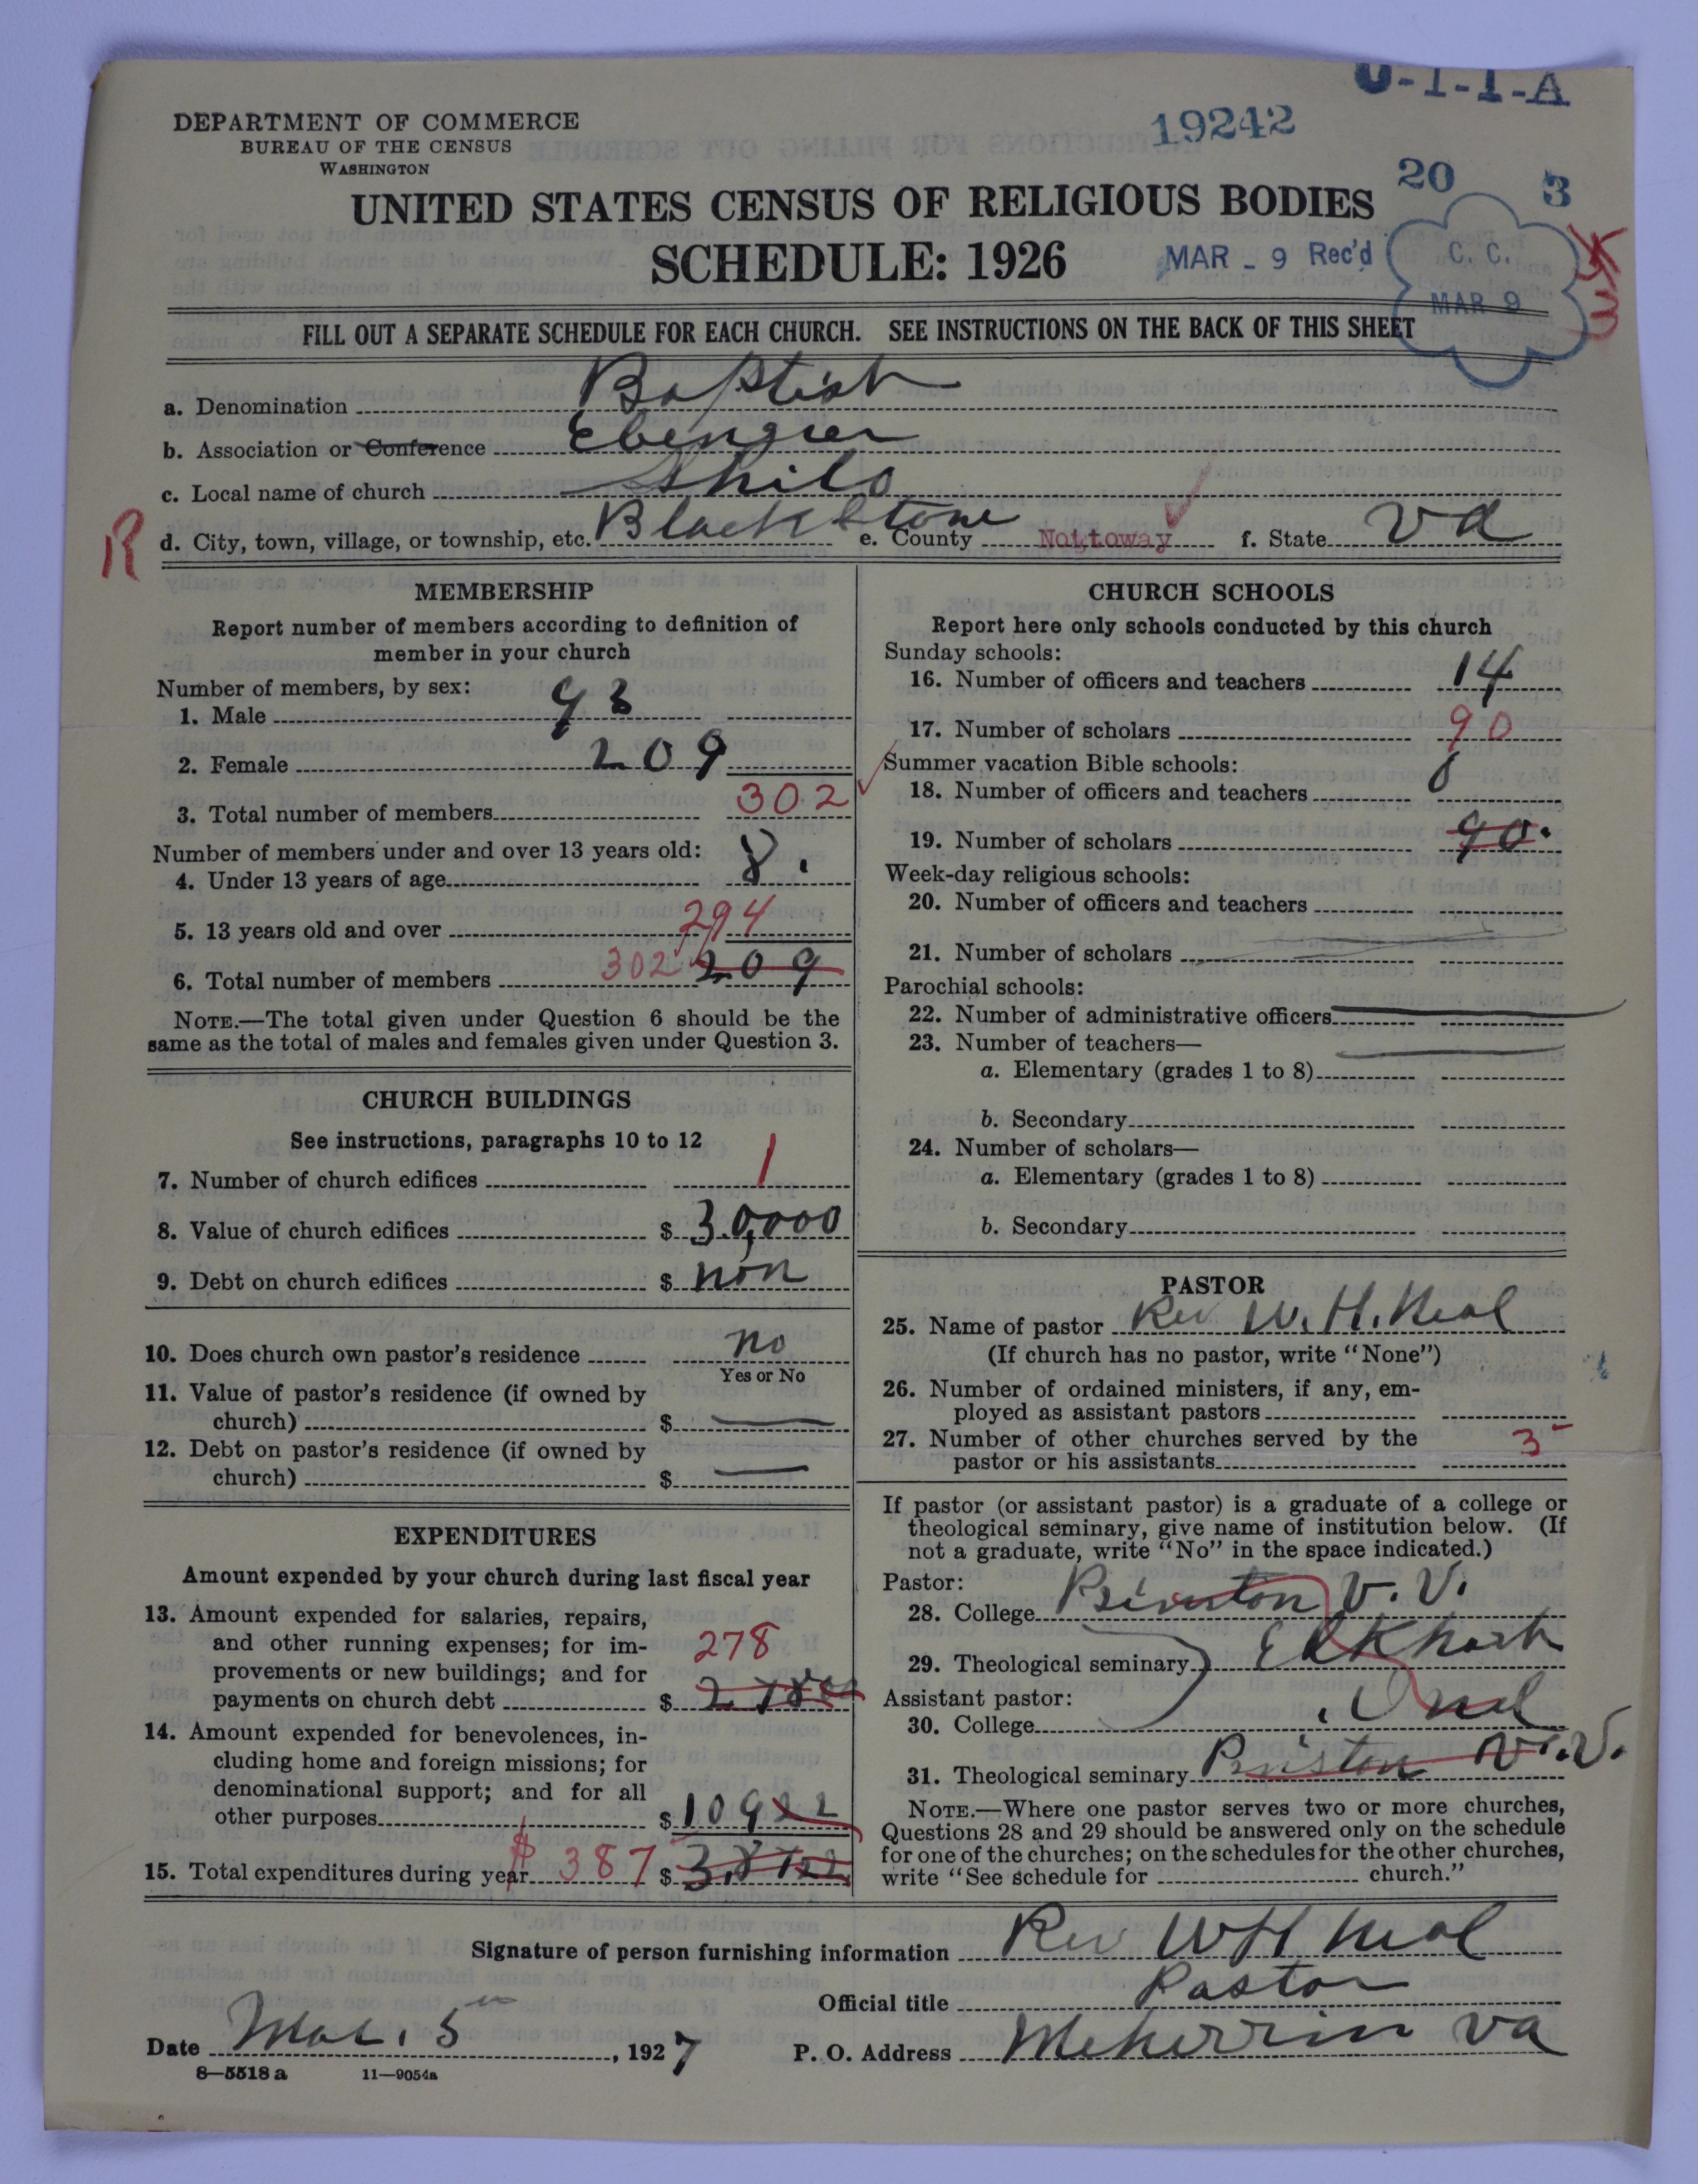 0-1-1-A
19242
DEPARTMENT OF COMMERCE
BUREAU OF THE CENSUS
WASHINGTON
20 3
UNITED STATES CENSUS OF RELIGIOUS BODIES
SCHEDULE: 1926
MAR - 9 Rec'd
C. C.
MAR 9
FILL OUT A SEPARATE SCHEDULE FOR EACH CHURCH. SEE INSTRUCTIONS ON THE BACK OF THIS SHEET
a. Denomination Baptist
b. Association or Conference Ebenezer
c. Local name of church Shilo
R
d. City, town, village, or township, etc. Blackstone e. County Nottoway f. State Va
MEMBERSHIP
Report number of members according to definition of
member in your church
Number of members, by sex:
1. Male 93
2. Female 209
3. Total number of members 302
Number of members under and over 13 years old:
4. Under 13 years of age 8.
5. 13 years old and over 294
6. Total number of members 302 209
NOTE.—The total given under Question 6 should be the
same as the total of males and females given under Question 3.
CHURCH BUILDINGS
See instructions, paragraphs 10 to 12
7. Number of church edifices 1
8. Value of church edifices $ 3.0,000
9. Debt on church edifices $ non
10. Does church own pastor's residence no
Yes or No
11. Value of pastor's residence (if owned by
church) $
12. Debt on pastor's residence (if owned by
church) $
EXPENDITURES
Amount expended by your church during last fiscal year
13. Amount expended for salaries, repairs,
and other running expenses; for im- 278
provements or new buildings; and for
payments on church debt $
14. Amount expended for benevolences, in-
cluding home and foreign missions; for
denominational support; and for all
other purposes $ 109 22
15. Total expenditures during year $ 387 $
CHURCH SCHOOLS
Report here only schools conducted by this church
Sunday schools:
16. Number of officers and teachers 14
17. Number of scholars 90
Summer vacation Bible schools:
18. Number of officers and teachers
19. Number of scholars 90.
Week-day religious schools:
20. Number of officers and teachers
21. Number of scholars
Parochial schools:
22. Number of administrative officers
23. Number of teachers—
a. Elementary (grades 1 to 8)
b. Secondary
24. Number of scholars—
a. Elementary (grades 1 to 8)
b. Secondary
PASTOR
25. Name of pastor Rev W. H. Neal
(If church has no pastor, write "None")
26. Number of ordained ministers, if any, em-
ployed as assistant pastors
27. Number of other churches served by the 3
pastor or his assistants
If pastor (or assistant pastor) is a graduate of a college or
theological seminary, give name of institution below. (If
not a graduate, write "No" in the space indicated.)
Pastor:
28. College V. V.
29. Theological seminary Elkhart
Assistant pastor:
30. College Ind
31. Theological seminary
NOTE.—Where one pastor serves two or more churches,
Questions 28 and 29 should be answered only on the schedule
for one of the churches; on the schedules for the other churches,
write "See schedule for church."
Signature of person furnishing information Rev W H Neal
Official title Pastor
Date Mar. 5th, 1927 P. O. Address Meherrin Va
8—5518 a 11—9054a